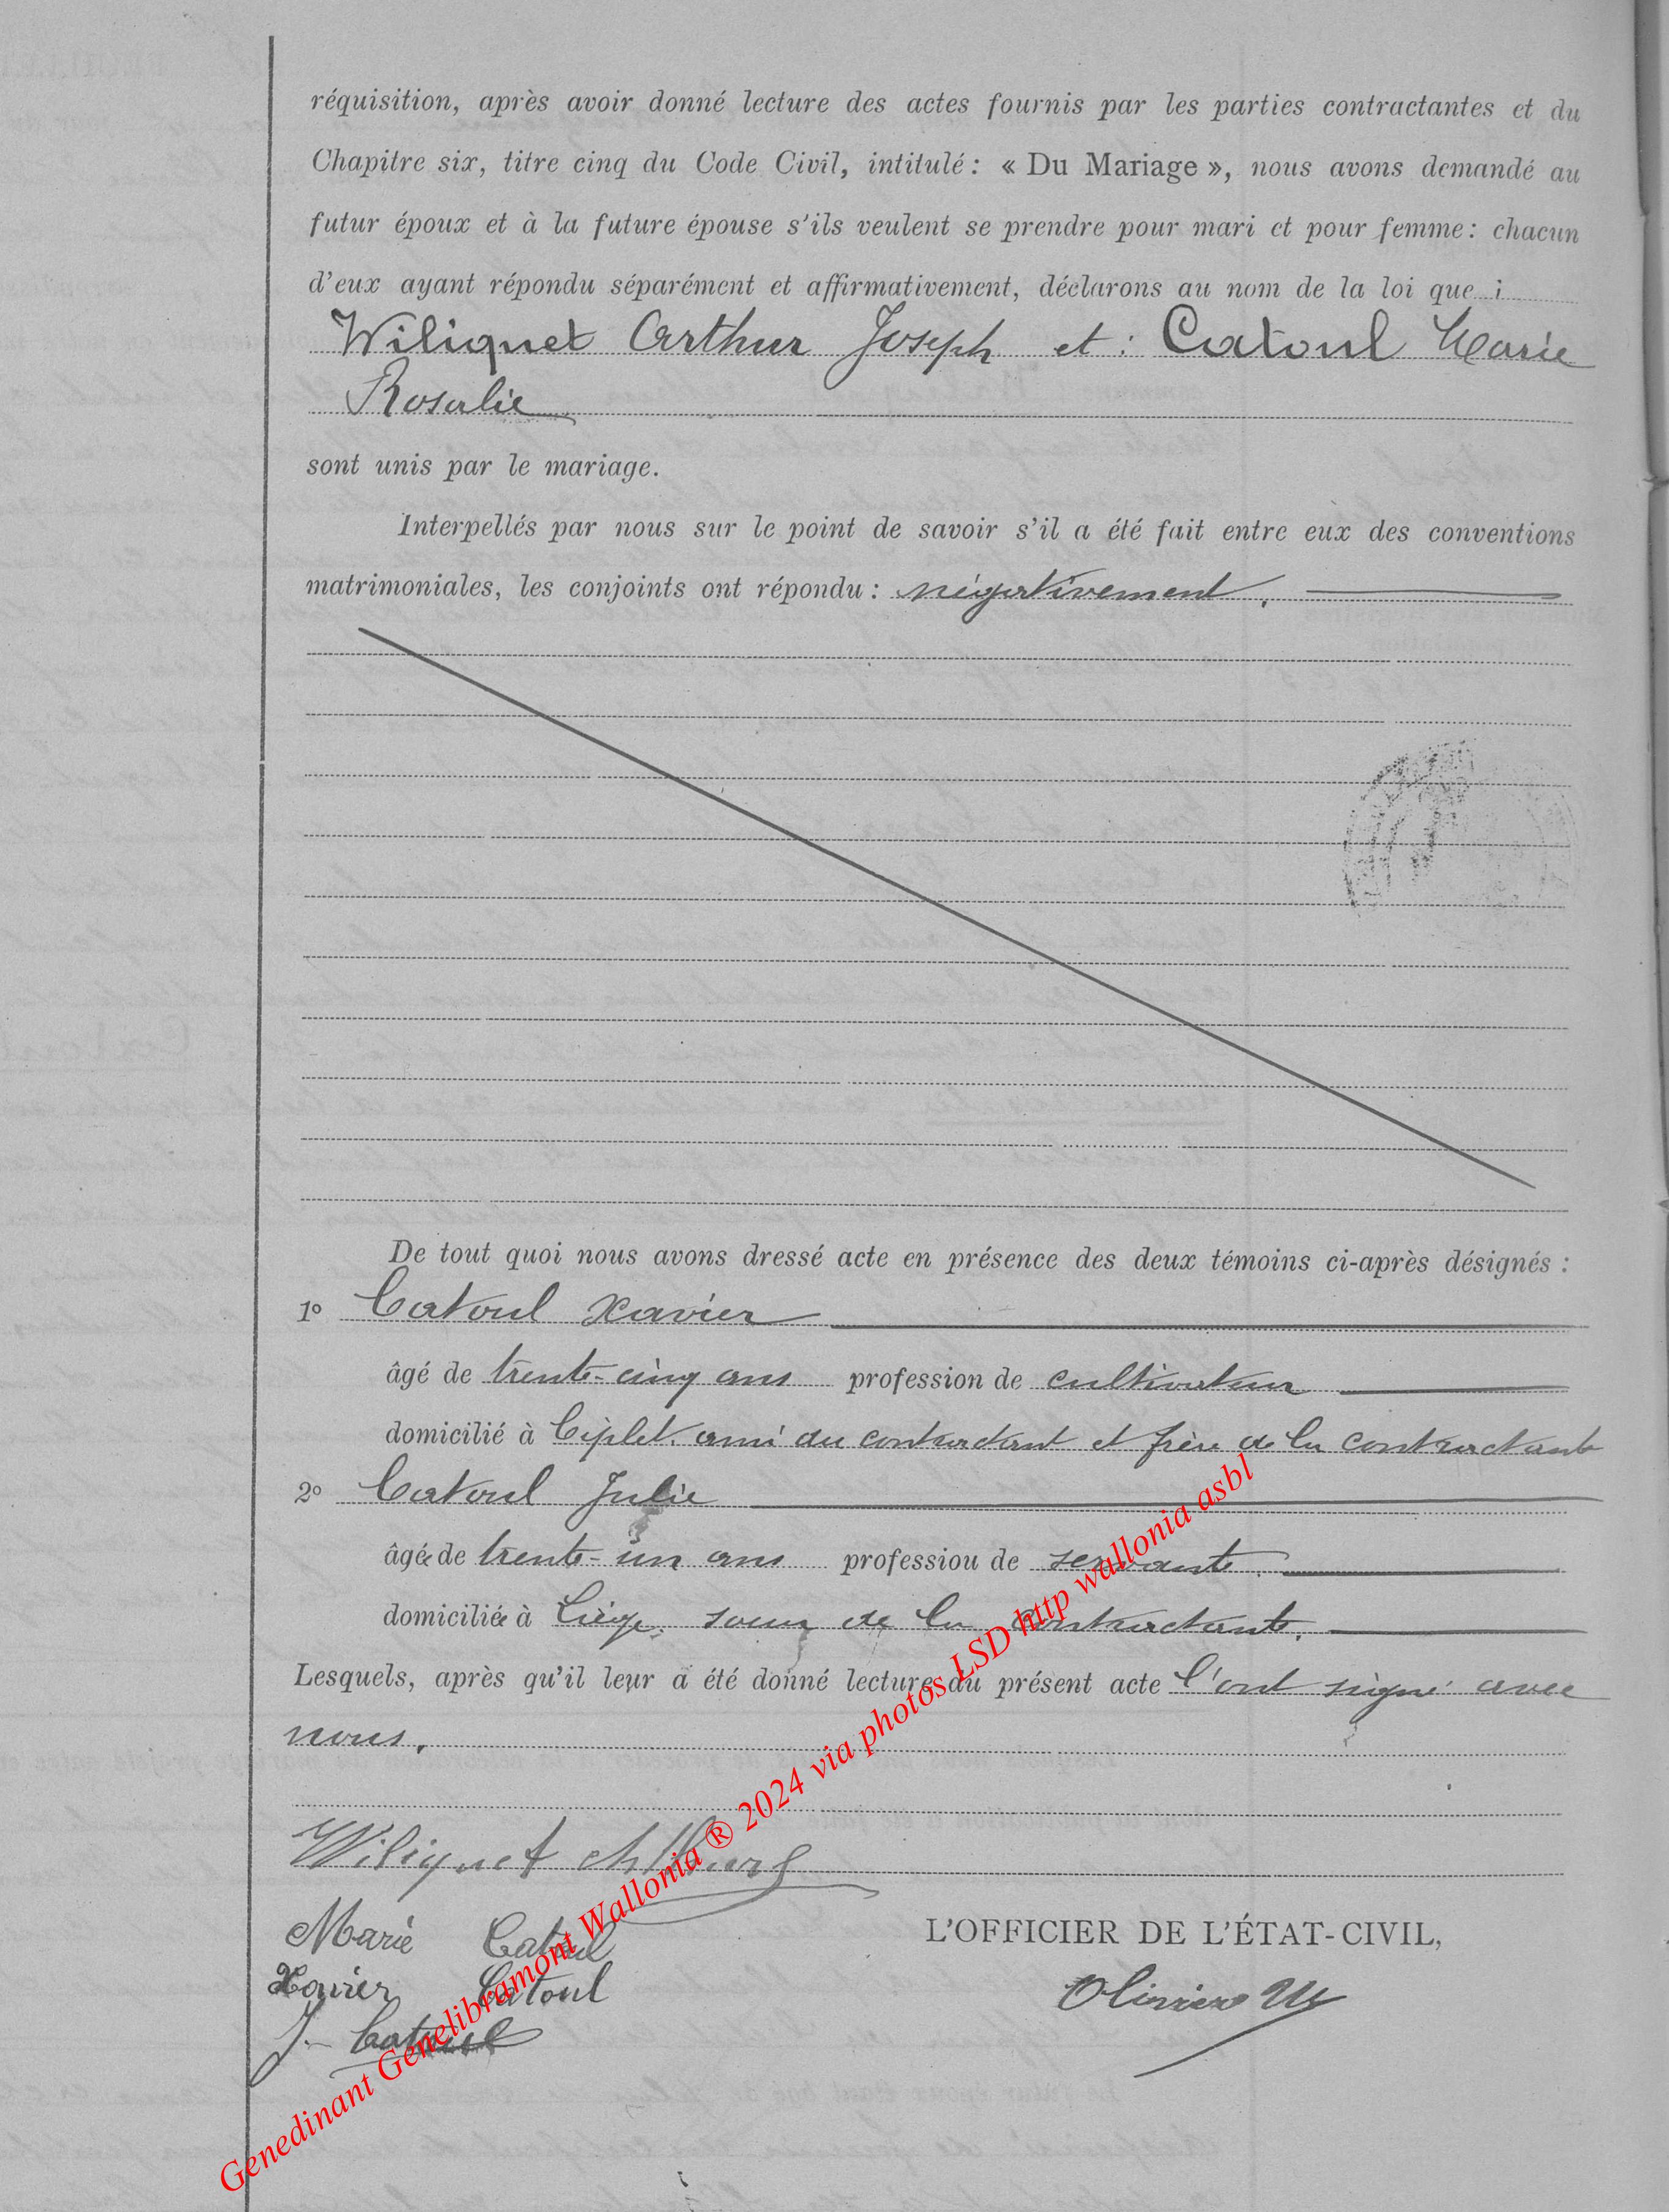 réquisition, après avoir donné lecture des actes fournis par les parties contractantes et du
Chapitre six, titre cinq du Code Civil, intitulé : « Du Mariage », nous avons demandé au
futur époux et à la future épouse s'ils veulent se prendre pour mari et pour femme : chacun
d'eux ayant répondu séparément et affirmativement, déclarons au nom de la loi que :
Wiliquet Arthur Joseph et : Catoul Marie
Rosalie
sont unis par le mariage.
Interpellés par nous sur le point de savoir s'il a été fait entre eux des conventions
matrimoniales, les conjoints ont répondu : négativement.
De tout quoi nous avons dressé acte en présence des deux témoins ci-après désignés :
1º Catoul Xavier
âgé de trente-cinq ans profession de cultivateur
domicilié à Ciplet, ami du contractant et frère de la contractante
2º Catoul Julie
âgée de trente-un ans profession de servante.
domiciliée à Liège, soeur de la contractante.
Lesquels, après qu'il leur a été donné lecture du présent acte l'ont signé avec
nous.
Wiliquet Arthur
Marie Catoul
L'OFFICIER DE L'ÉTAT-CIVIL,
Xavier Catoul
Olivier
J. Catoul
Genedinant Genelibramont Wallonia ® 2024 via photos LSD http wallonia asbl